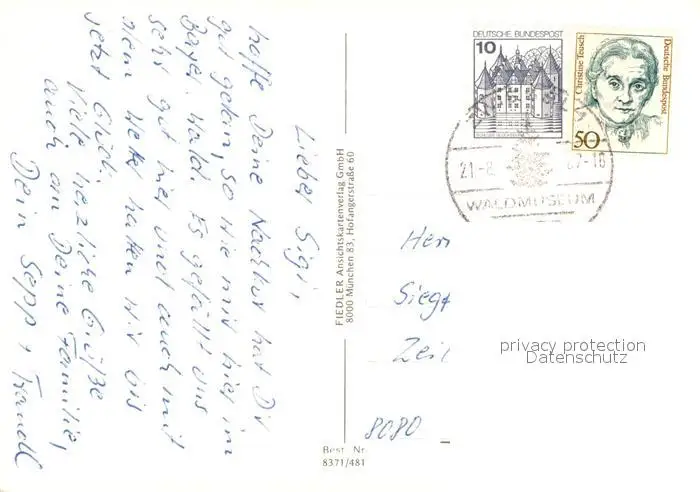 Lieber Sigi,
hoffe Deine Nachkur hat Dir
gut getan, so wie mir hier im
Bayer. Wald. Es gefällt uns
sehr gut hier und auch mit
dem Wetter hatten wir bis
jetzt Glück.
Viele herzliche Grüße
auch an Deine Familie,
Dein Sepp + Traudl
FIEDLER Ansichtskartenverlag GmbH
8000 München 83, Hofangerstraße 60
Best. Nr.
8371/481
DEUTSCHE BUNDESPOST
10
Christine Teusch
Deutsche Bundespost
50
21-8
7-16
WALDMUSEUM
Herr
Siegf
Zeil
8080
privacy protection
Datenschutz